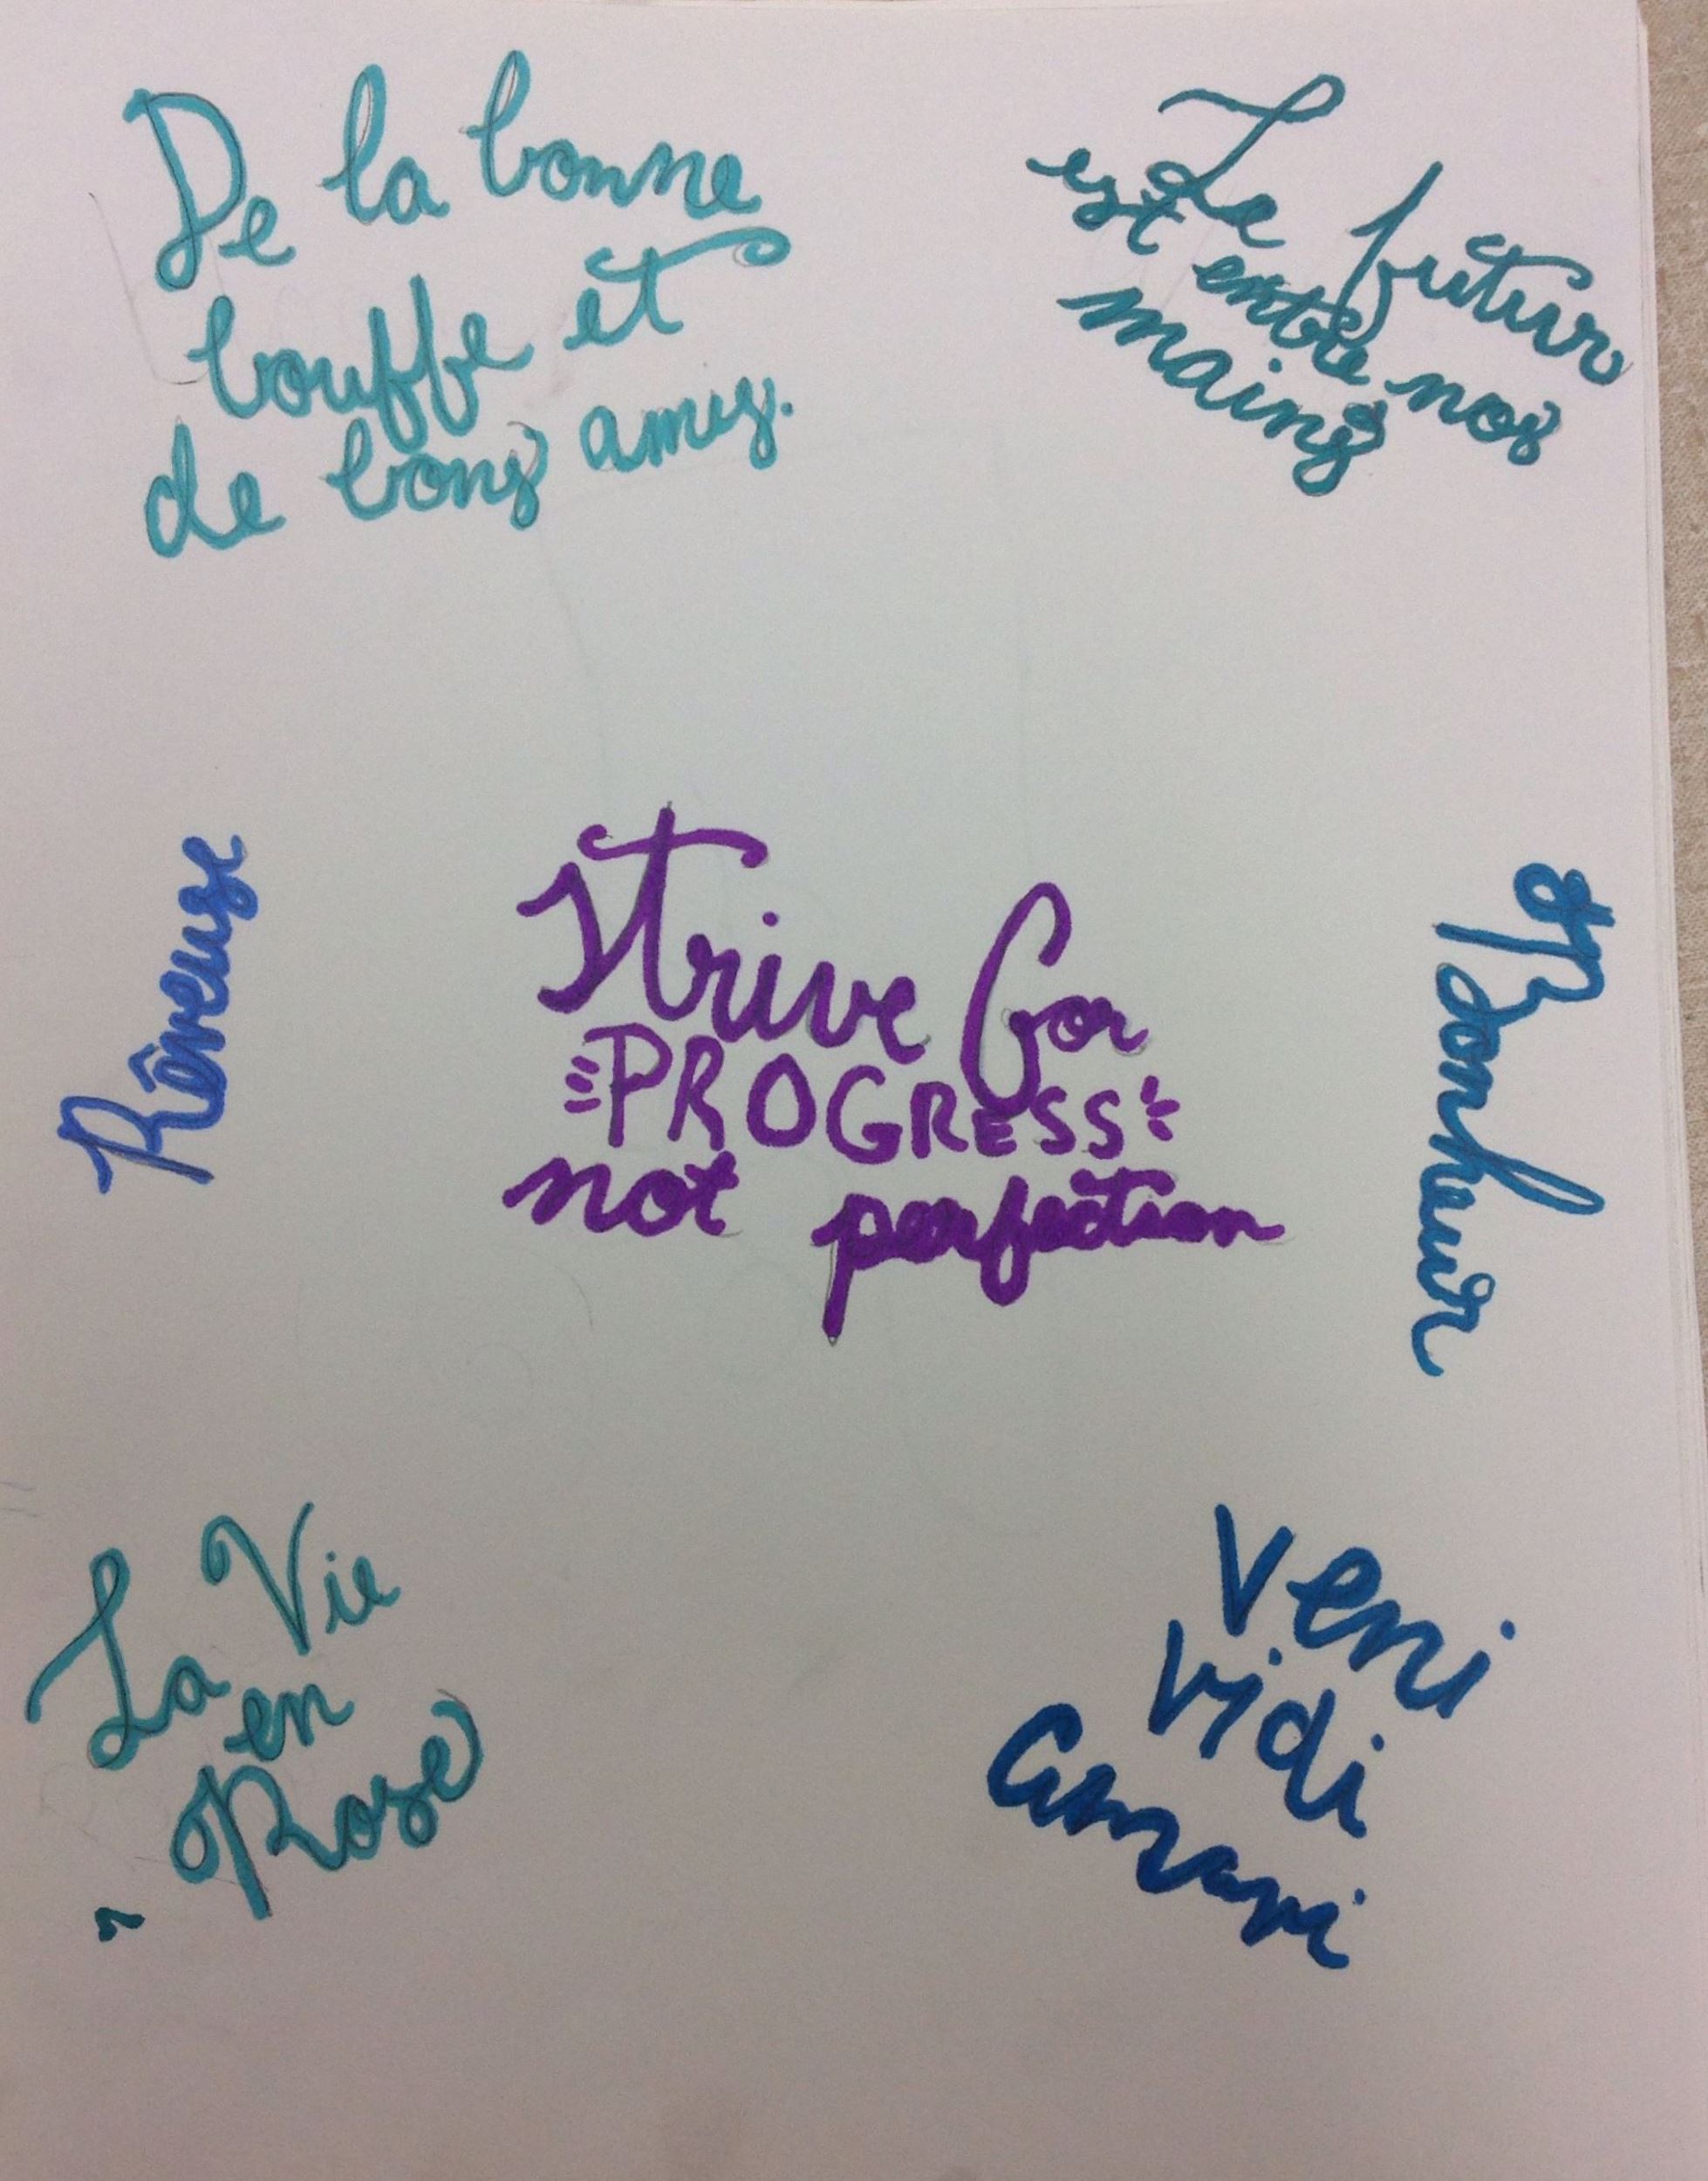 De la bonne
bouffe et
de bons amis.
Le futur
est entre nos
mains
Rêveuse
Strive for
PROGRESS
not perfection
Bonheur
La Vie
en
Rose
Veni
Vidi
Amavi